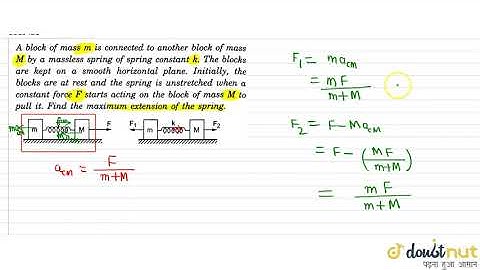 A block of mass m is connected to another block of mass
M by a massless spring of spring constant k. The blocks
are kept on a smooth horizontal plane. Initially, the
blocks are at rest and the spring is unstretched when a
constant force F starts acting on the block of mass M to
pull it. Find the maximum extension of the spring.
m M F
F₁ m k M F₂
a_cm = F/(m+M)
F₁ = m a_cm
= mF/(m+M)
F₂ = F - M a_cm
= F - (MF/(m+M))
= mF/(m+M)
doubtnut
पढ़ना हुआ आसान